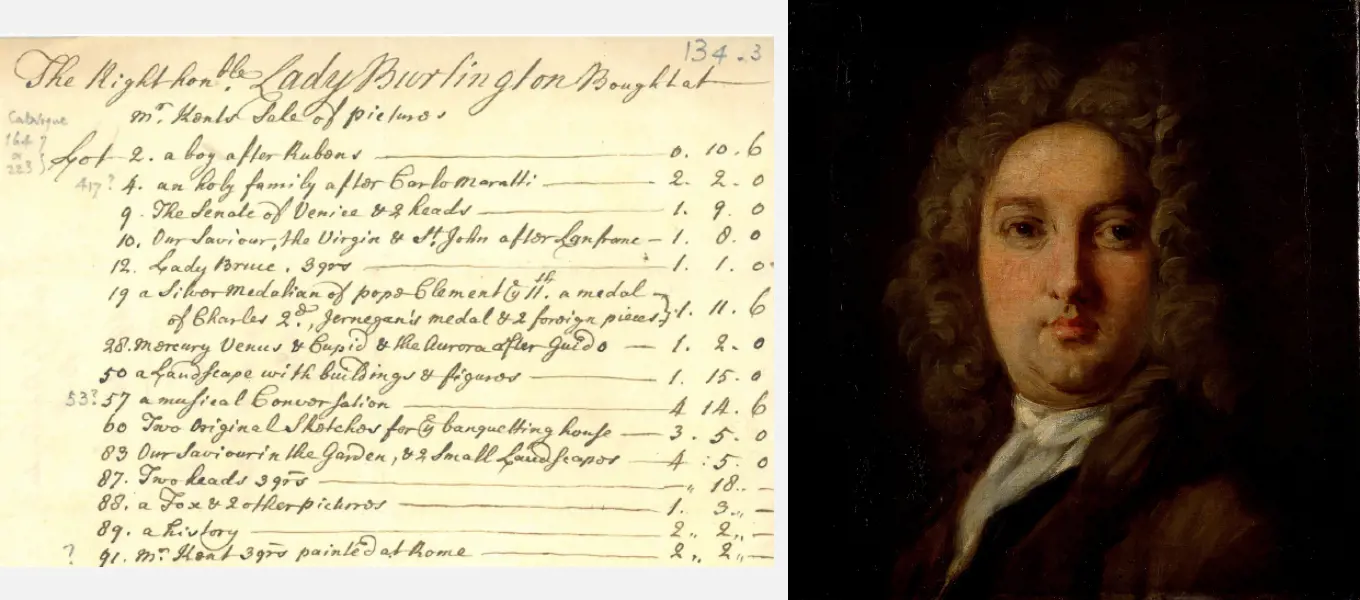 134-3
The Right hon.ble Lady Burlington Bought at
mr. Kents Sale of pictures
Catalogue
164?
or
223
Lot 2. a boy after Rubens 0. 10. 6
417? 4. an holy family after Carlo Maratti 2. 2. 0
9. The Senate of Venice & 2 heads 1. 9. 0
10. Our Saviour, the Virgin & St. John after Lanfranc 1. 8. 0
12. Lady Bruce. 3qrs 1. 1. 0
19 a Silver Medalian of pope Clement ye 11th. a medal
of Charles 2d., Jernegan's medal & 2 foreign pieces 1. 11. 6
28. Mercury Venus & Cupid & the Aurora after Guido 1. 2. 0
50 a Landscape with buildings & figures 1. 15. 0
53? 57 a musical Conversation 4 14. 6
60 Two Original Sketches for ye banquetting house 3. 5. 0
83 Our Saviour in the Garden, & 2 Small Landscapes 4 : 5. 0
87. Two heads 3qrs „ 18.. -
88. a Fox & 2 other pictures 1. 3.. -
89. a history 2.. 2.. -
? 91. Mr. Kent 3qrs painted at Rome 2.. 2.. -